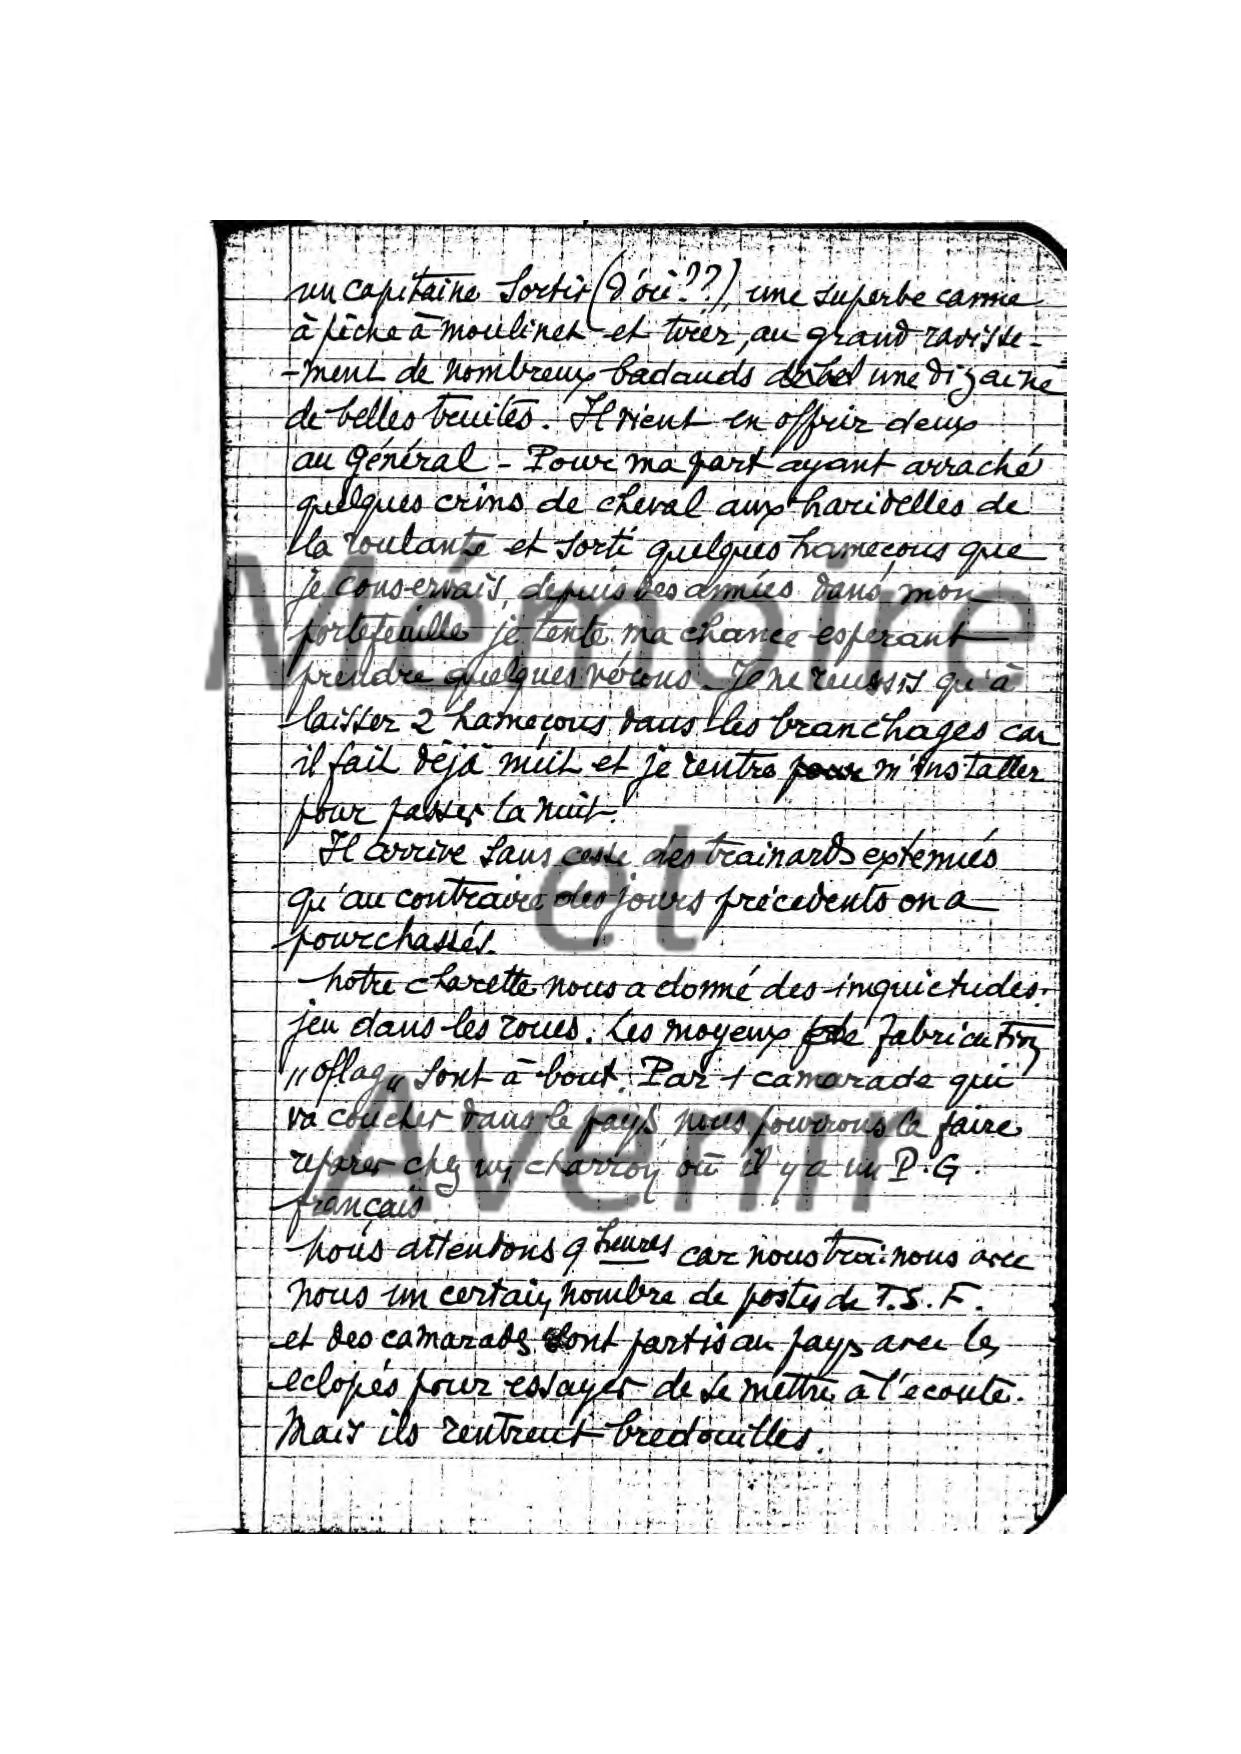 un capitaine sortir (d'où??), une superbe canne
à pêche à moulinet et tirer, au grand ravisse-
-ment de nombreux badauds une dizaine
de belles truites. Il vient en offrir deux
au général - Pour ma part ayant arraché
quelques crins de cheval aux haridelles de
la roulante et sorti quelques hameçons que
je conservais, depuis des années dans mon
portefeuille je tente ma chance esperant
prendre quelques vérons. Je ne reussis qu'à
laisser 2 hameçons dans les branchages car
il fait déjà nuit et je rentre pour m'installer
pour passer la nuit.
Il arrive sans cesse des trainards extenués
qu'au contraire des jours précedents on a
pourchassés.
Notre charette nous a donné des inquietudes.
jeu dans les roues. Les moyeux de fabrication
"oflag" sont à bout. Par 1 camarade qui
va coucher dans le pays nous pourrons la faire
reparer chez un charron où il y a un P.G
français.
Nous attendons 9 heures car nous trainons avec
nous un certain nombre de postes de T.S.F.
et des camarades sont partis au pays avec les
eclopés pour essayer de se mettre à l'ecoute.
Mais ils rentrent bredouilles.
Mémoire
et
Avenir